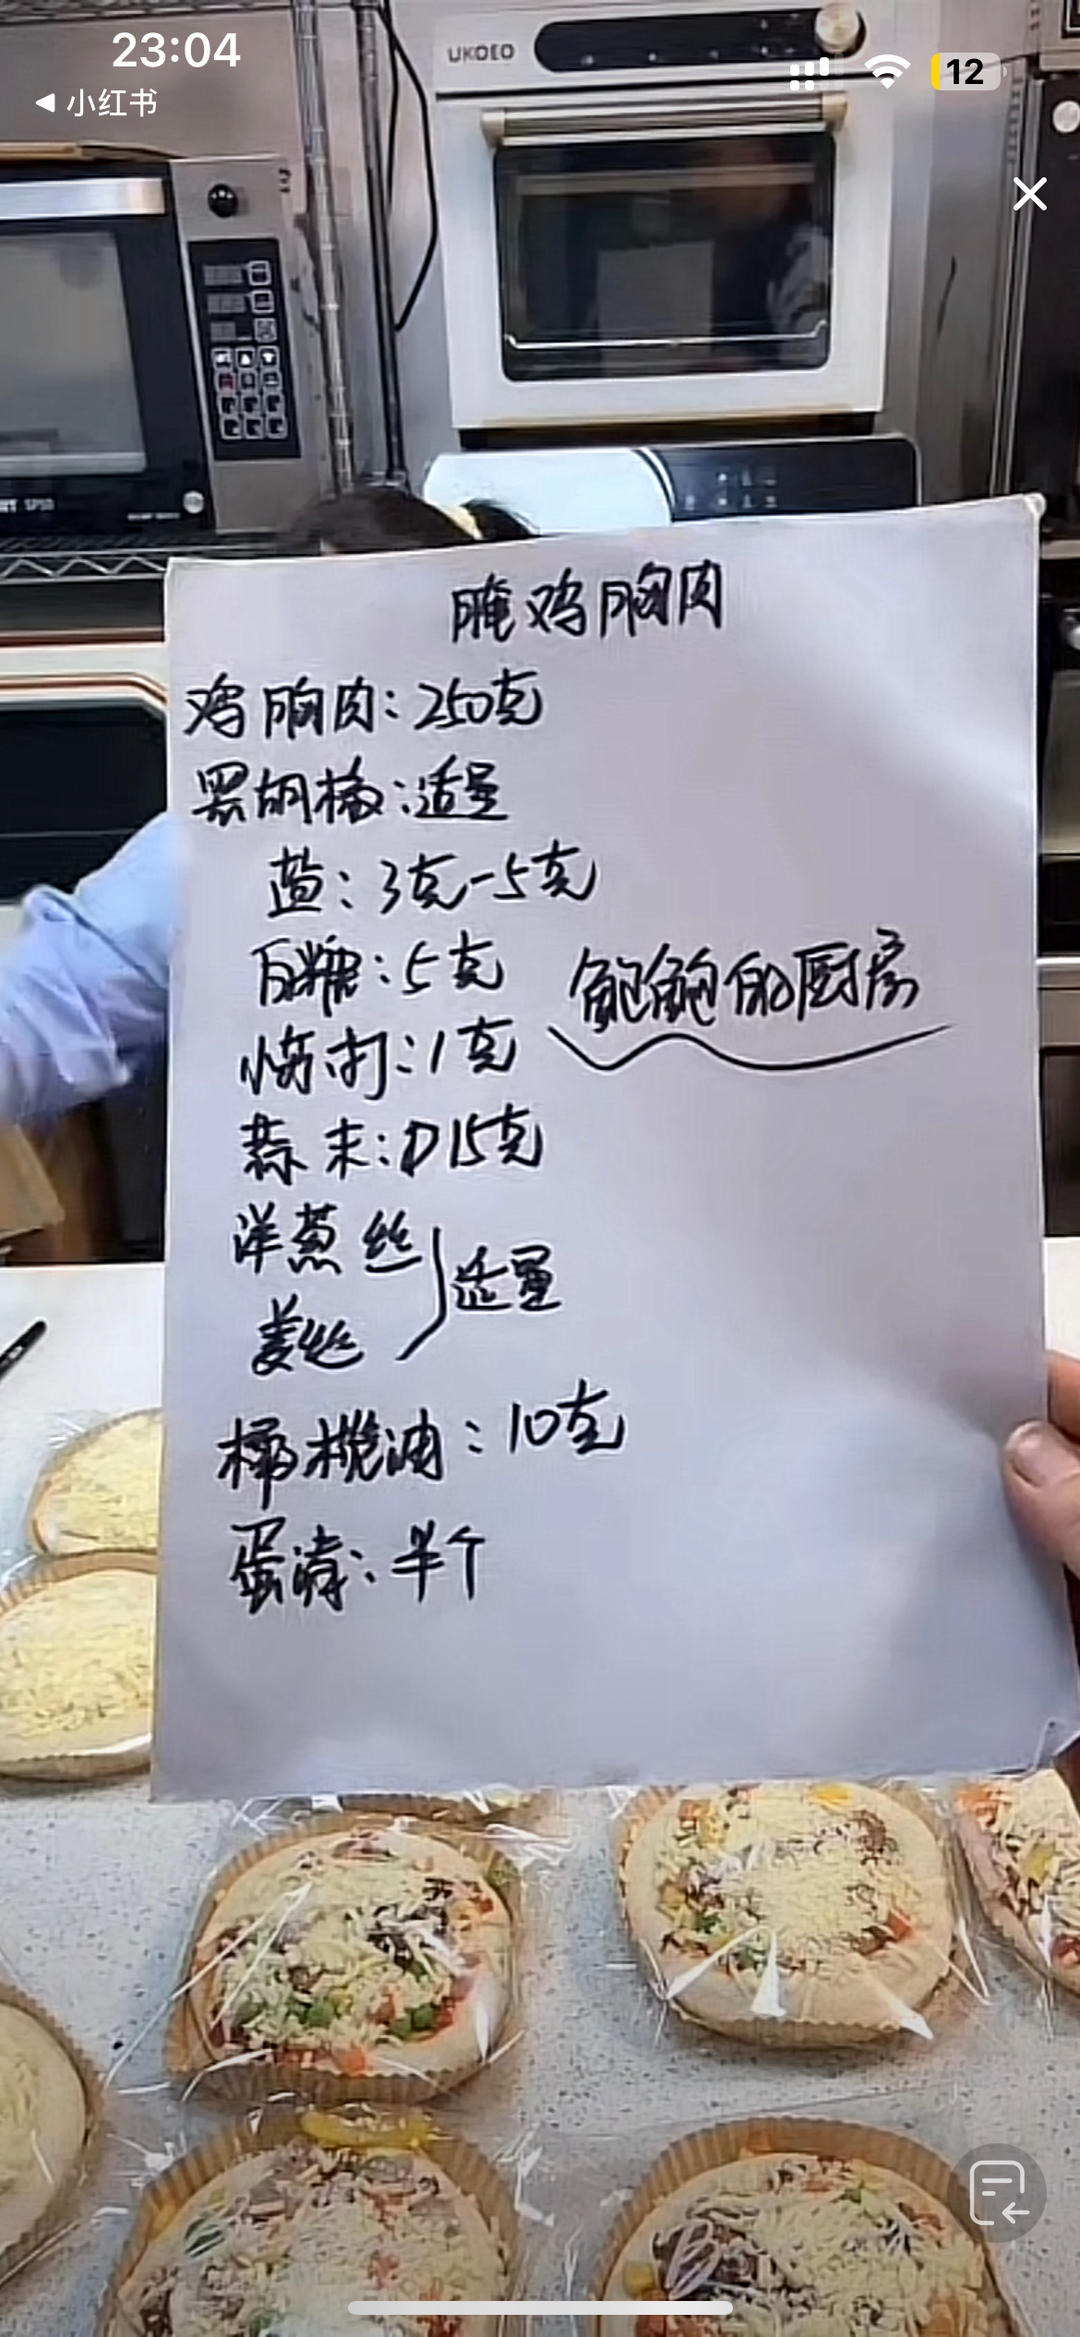 23:04
小红书
12
UKOEO
腌鸡胸肉
鸡胸肉：250克
黑胡椒：适量
盐：3克-5克
白糖：5克
鲍鲍的厨房
小苏打：1克
蒜末：15克
洋葱丝
姜丝
适量
橄榄油：10克
蛋清：半个